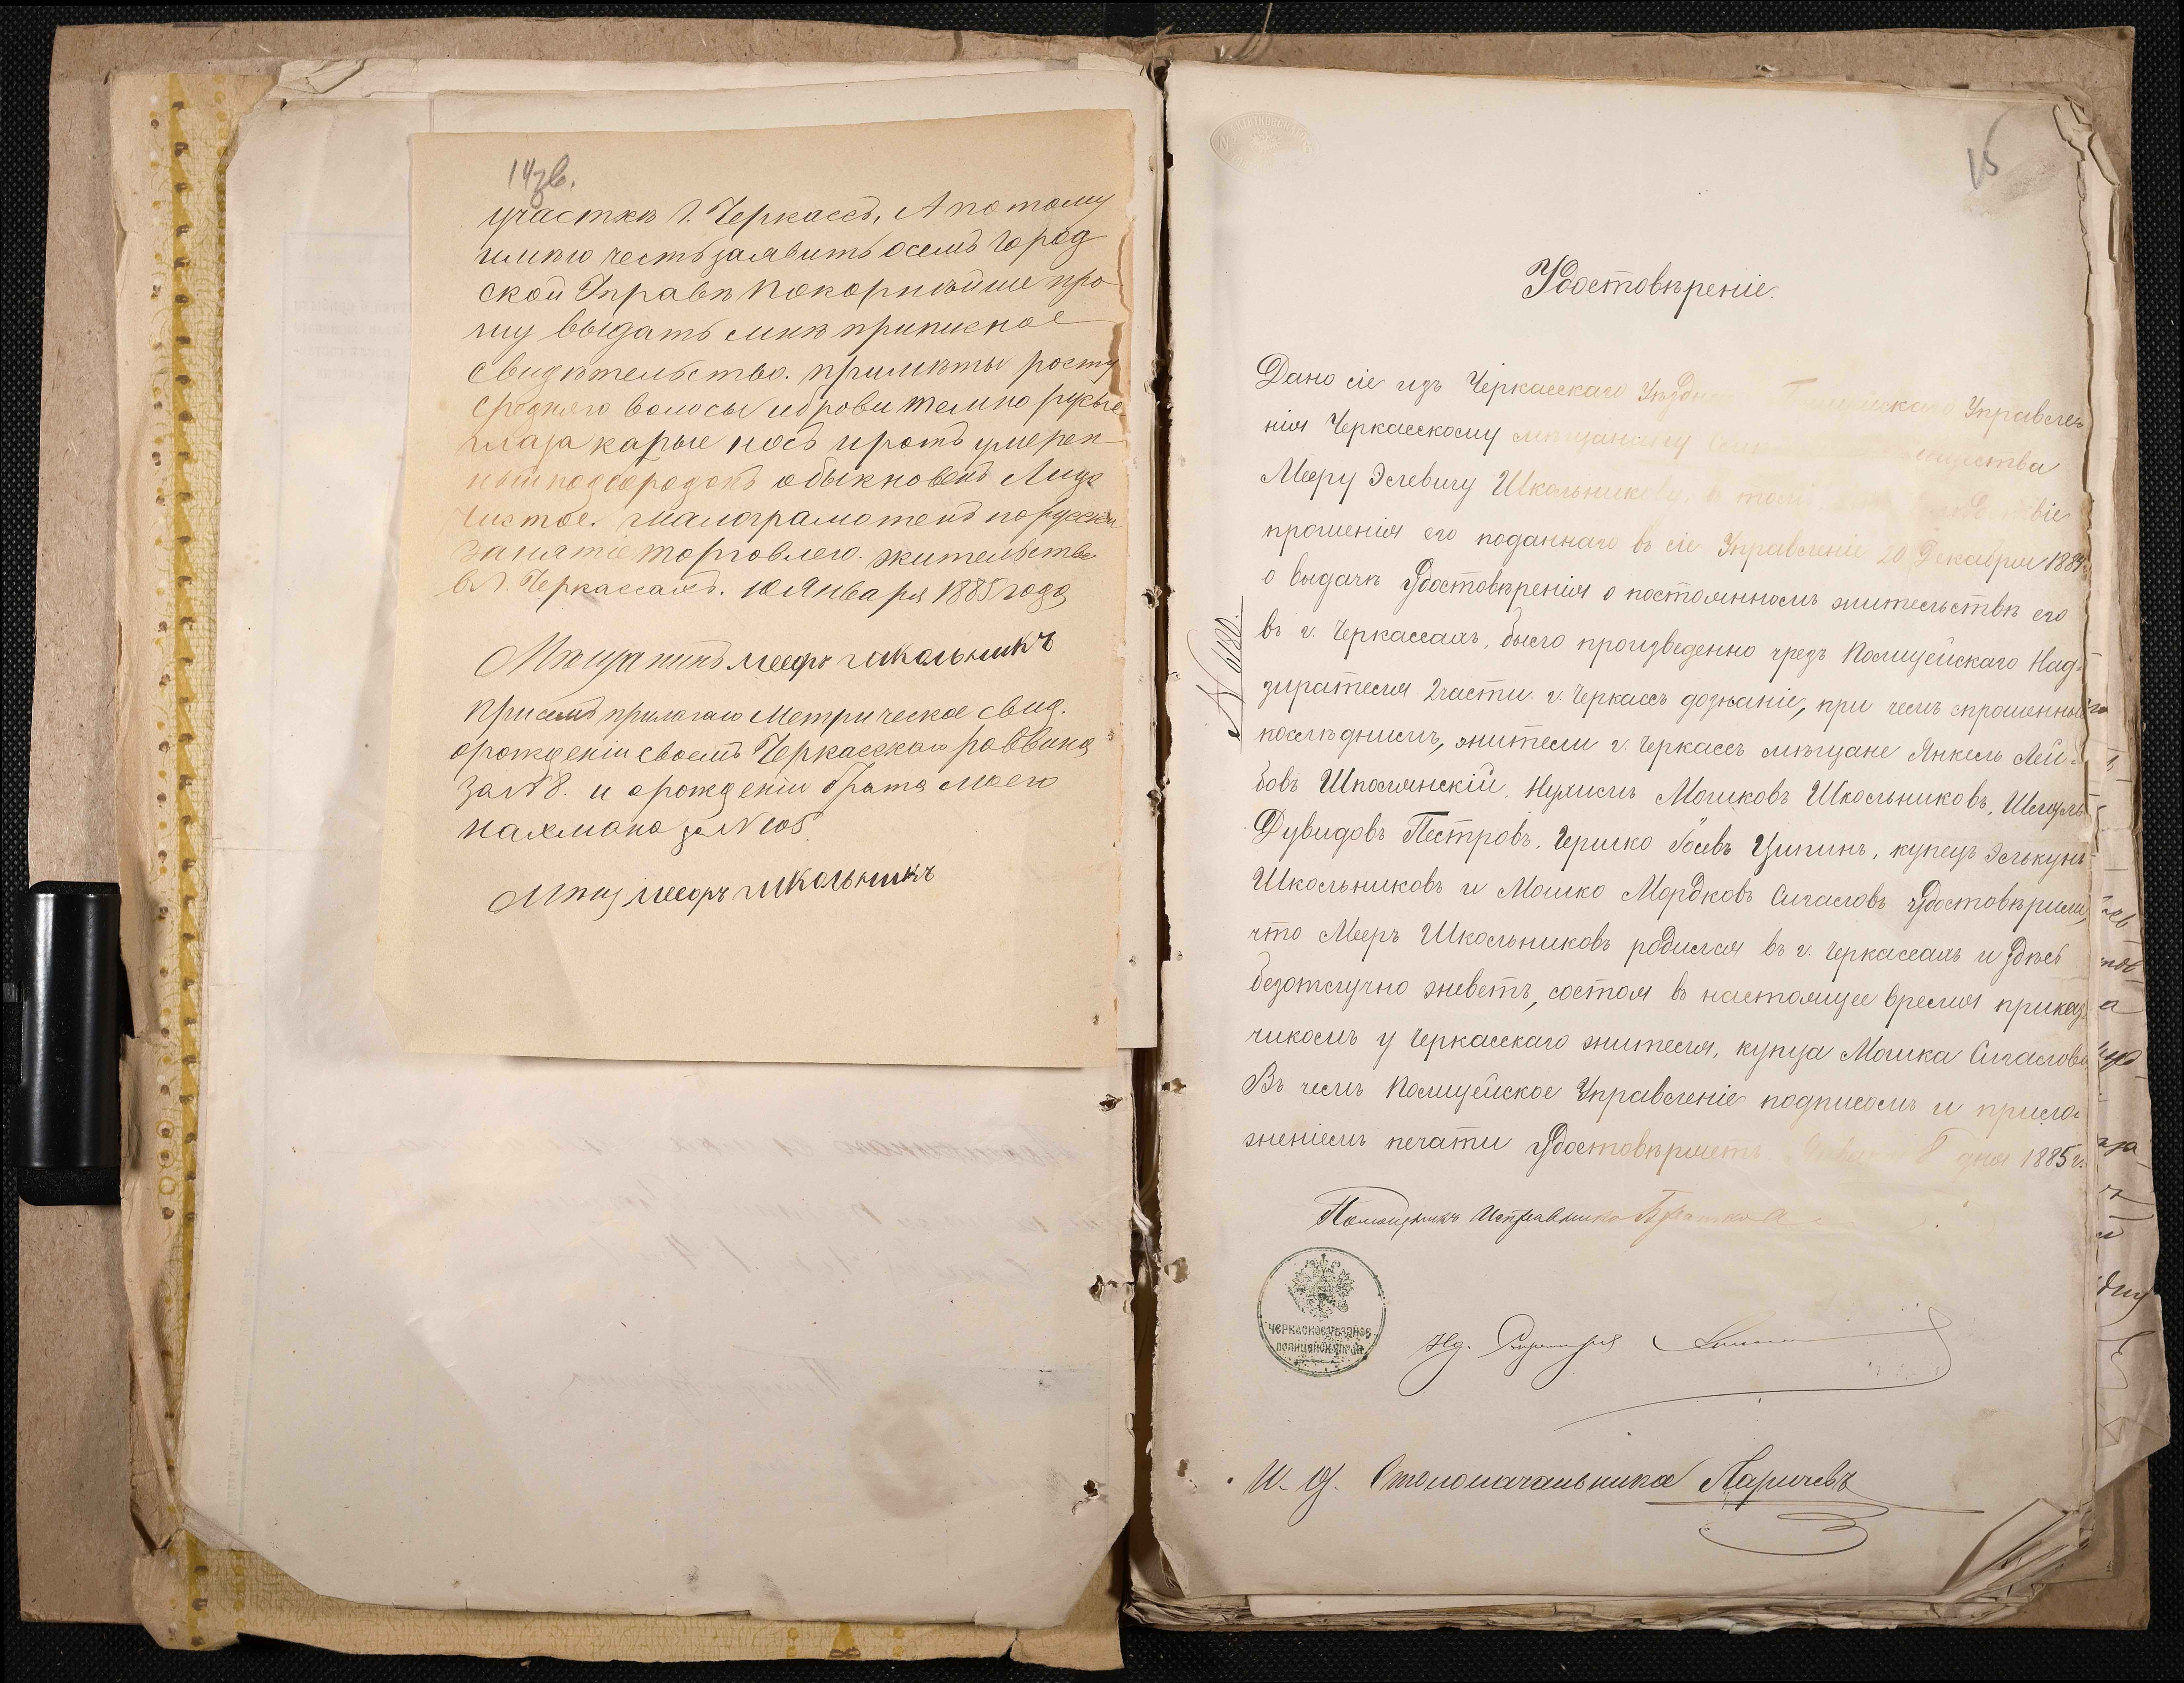 14 зв.
участкѣ Г. Черкассъ, А потому
имѣю честь заявить осемъ Город
ской Управѣ покорнѣйше про
шу выдать мнѣ приписное
свидѣтельство. примѣты росту
средняго волосы иброви темно русые
глаза карые носъ иротъ умерен
ный подбородокъ обыкновенъ Лице
чистое. малограмотенъ порусски
занятіе торговлею. жительство
в Г. Черкассахъ. 10 Января 1885 года
Мѣщанинъ мееръ школьникъ
присемъ прилагаю Метрическое свид.
орожденіи своемъ Черкасскаго раввина
за №8. и орожденіи брата моего
нахмана за №105
Мѣщ мееръ школьникъ
15
Удостовѣреніе.
Дано сіе изъ Черкасскаго Уѣздн Управле
нія Черкасскому мѣщанину
Мееру Элевичу Школьникову, в том
прошенія его поданнаго въ сіе Управленіе 20 Декабря 1884
о выдачѣ Удостовѣренія о постоянномъ жительствѣ его
въ г. Черкассахъ, было произведенно чрезъ Полицейскаго Над-
зирателя 2 части г. Черкассъ дознаніе, при чемъ спрошенные
послѣднимъ, жители г. Черкассъ мѣщане Янкель Лей-
бовъ Шполянскій, Нухимъ Мошковъ Школьниковъ, Шмуль
Дувидовъ Пестровъ, Гершко Ципинъ, купецъ Элькунъ
Школьниковъ и Мошко Мордковъ Сигаловъ удостовѣрили,
что Мееръ Школьниковъ родился въ г. Черкассахъ и здѣсь
безотлучно живетъ, состоя въ настоящее время приказ
чикомъ у Черкасскаго жителя, купца Мошка Сигалова
Въ чемъ Полицейское Управленіе подписомъ и прило-
женіемъ печати удостовѣряетъ. 8 дня 1885 г.
Помощникъ Исправника
ЧЕРКАСКОЕ УѢЗДНОЕ
ПОЛИЦЕЙСК. УПРАВ.
И. д. Столоначальника Ларичевъ